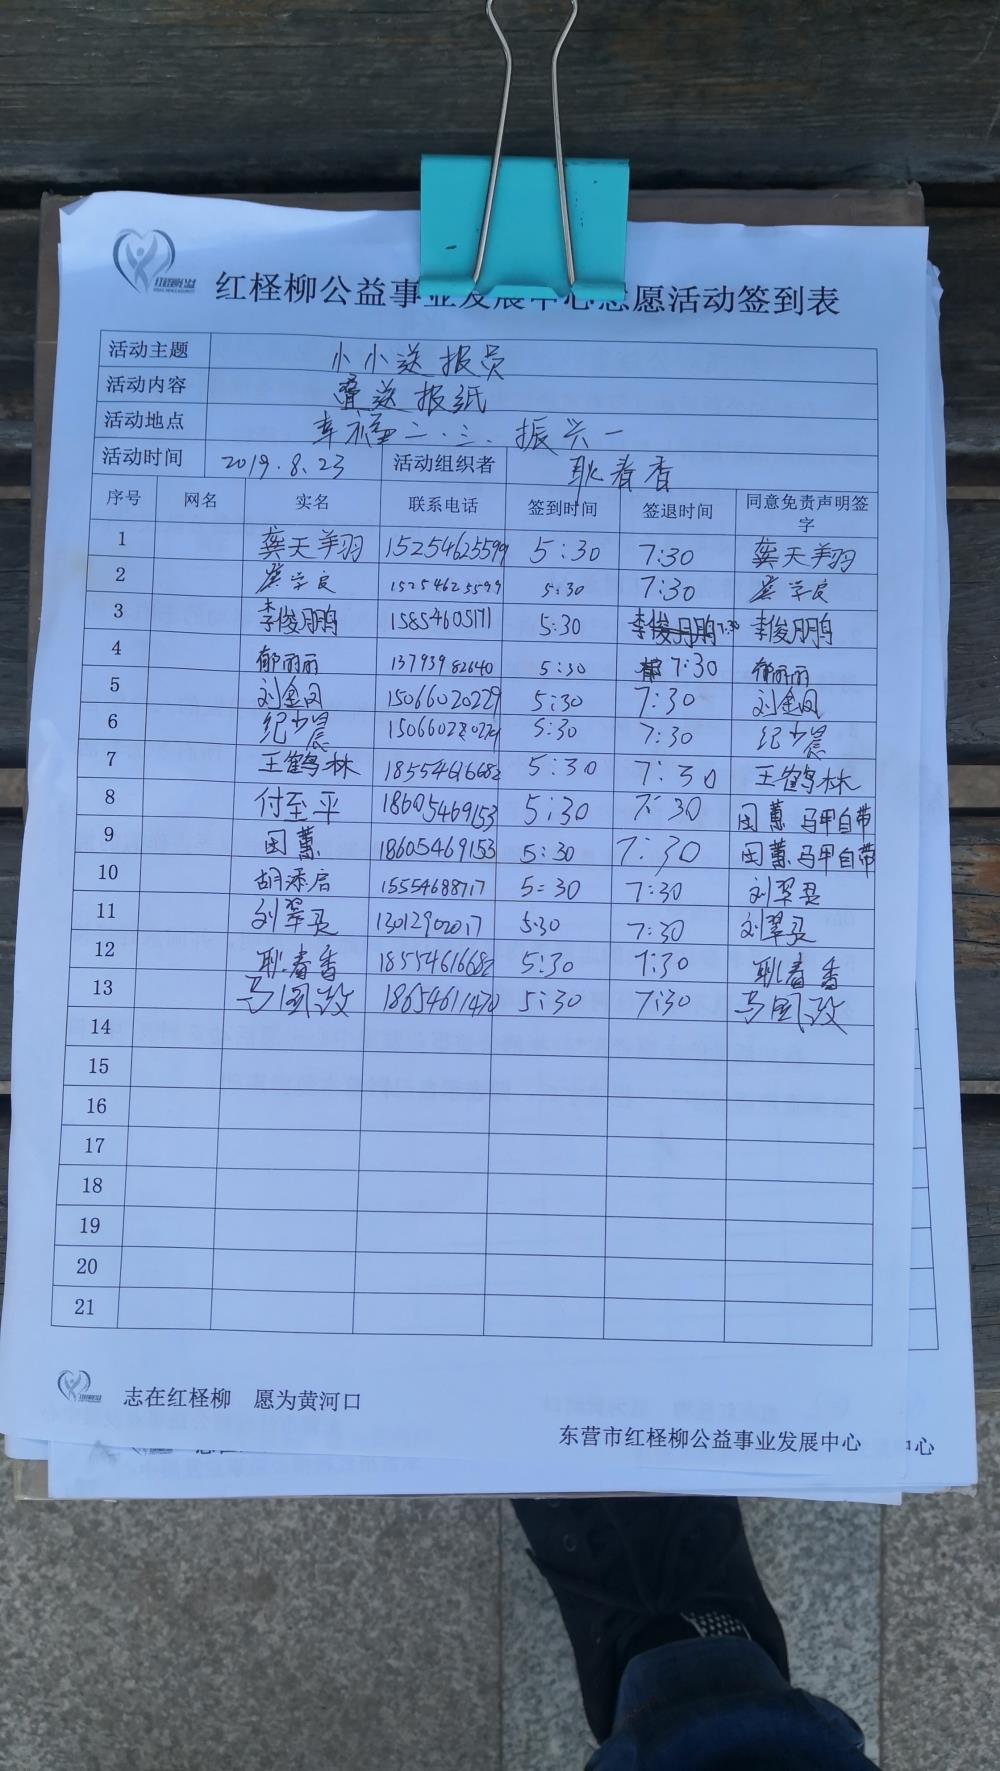 红柽柳公益事业发展中心志愿活动签到表
活动主题 小小送报员
活动内容 叠送报纸
活动地点 幸福二.三.振兴一
活动时间 2019.8.23 活动组织者 耿春香
序号 网名 实名 联系电话 签到时间 签退时间 同意免责声明签字
1 龚天羽 15254625599 5:30 7:30 龚天羽
2 学良 15254625599 5:30 7:30 学良
3 李俊鹏 15854605171 5:30 7:30 李俊鹏
4 郁丽丽 13793982640 5:30 7:30 郁丽丽
5 刘金凤 15066020229 5:30 7:30 刘金凤
6 纪少晨 5:30 7:30 纪少晨
7 王鹤林 18554616682 5:30 7:30 王鹤林
8 付至平 18605469153 5:30 7:30 田蕙 马甲自带
9 田蕙 18605469153 5:30 7:30 田蕙 马甲自带
10 胡添启 15554688717 5:30 7:30 刘翠灵
11 刘翠灵 13012902017 5:30 7:30 刘翠灵
12 耿春香 18554616682 5:30 7:30 耿春香
13 马国政 18654611470 5:30 7:30 马国政
14
15
16
17
18
19
20
21
志在红柽柳 愿为黄河口
东营市红柽柳公益事业发展中心
中心